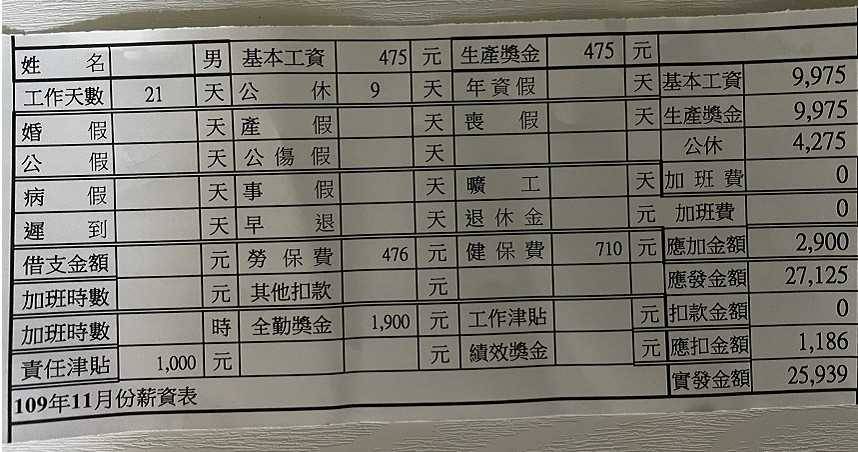 姓名 男 基本工資 475 元 生產獎金 475 元
工作天數 21 天 公休 9 天 年資假 天 基本工資 9,975
婚假 天 產假 天 喪假 天 生產獎金 9,975
公假 天 公傷假 天 公休 4,275
病假 天 事假 天 曠工 天 加班費 0
遲到 天 早退 天 退休金 元 加班費 0
借支金額 元 勞保費 476 元 健保費 710 元 應加金額 2,900
加班時數 元 其他扣款 元 應發金額 27,125
加班時數 時 全勤獎金 1,900 元 工作津貼 元 扣款金額 0
責任津貼 1,000 元 元 績效獎金 元 應扣金額 1,186
109年11月份薪資表 實發金額 25,939